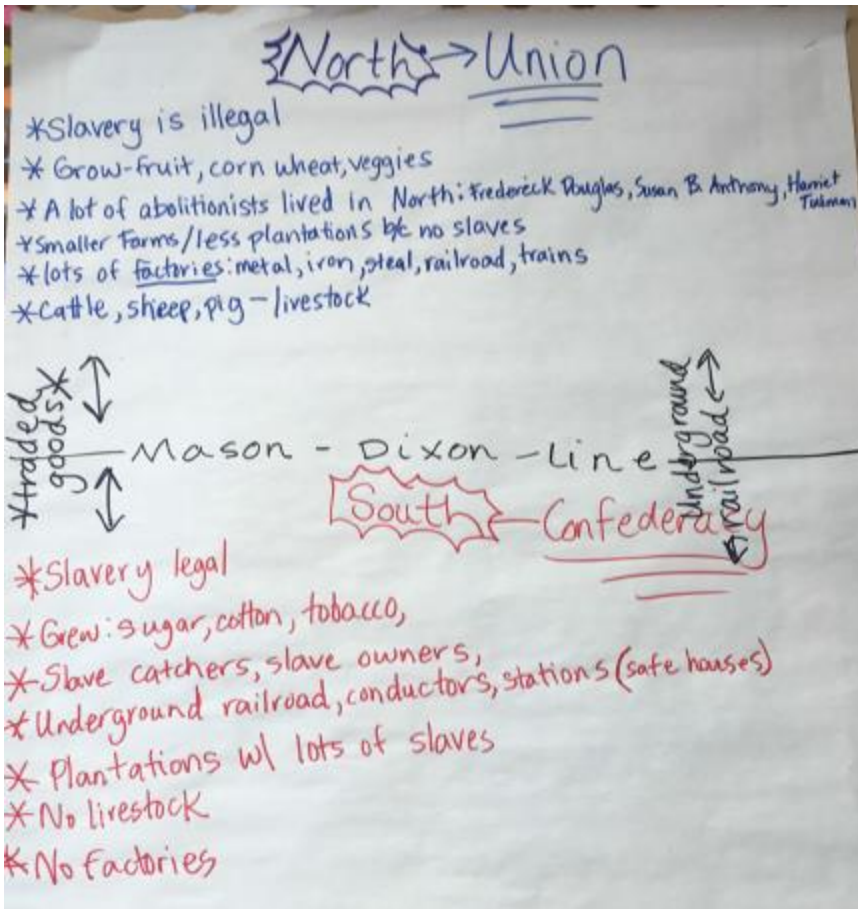 North → Union
*Slavery is illegal
* Grow-fruit, corn wheat, veggies
* A lot of abolitionists lived in North: Frederick Douglas, Susan B. Anthony, Harriet
Tubman
*Smaller Farms/less plantations b/c no slaves
*lots of factories: metal, iron, steal, railroad, trains
*Cattle, sheep, pig - livestock
*traded
goods*
Underground
railroad
Mason - Dixon - Line
South - Confederacy
*Slavery legal
*Grew: sugar, cotton, tobacco,
*Slave catchers, slave owners,
*Underground railroad, conductors, stations (safe houses)
* Plantations w/ lots of slaves
*No livestock
*No factories